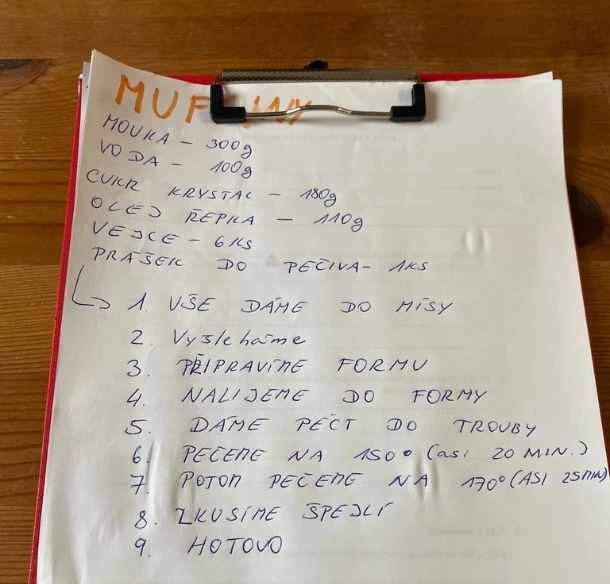 MUFFINY
MOUKA – 300g
VODA – 100g
CUKR KRYSTAL – 180g
OLEJ ŘEPKA – 110g
VEJCE – 6KS
PRÁŠEK DO PEČIVA – 1KS
1. VŠE DÁME DO MÍSY
2. Vyšleháme
3. PŘIPRAVÍME FORMU
4. NALIJEME DO FORMY
5. DÁME PÉCT DO TROUBY
6. PEČEME NA 150° (asi 20 MIN.)
7. POTOM PEČEME NA 170° (ASI 25MIN)
8. ZKUSÍME ŠPEJLÍ
9. HOTOVO